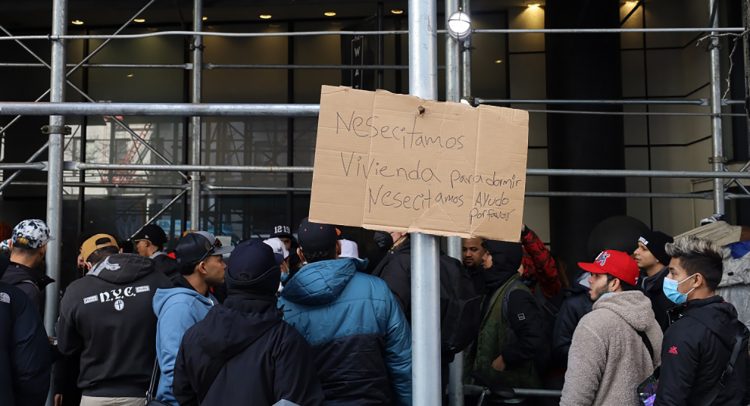 Nesecitamos
Vivienda para dormir
Nesecitamos Ayudo
por favor
N.Y.C.